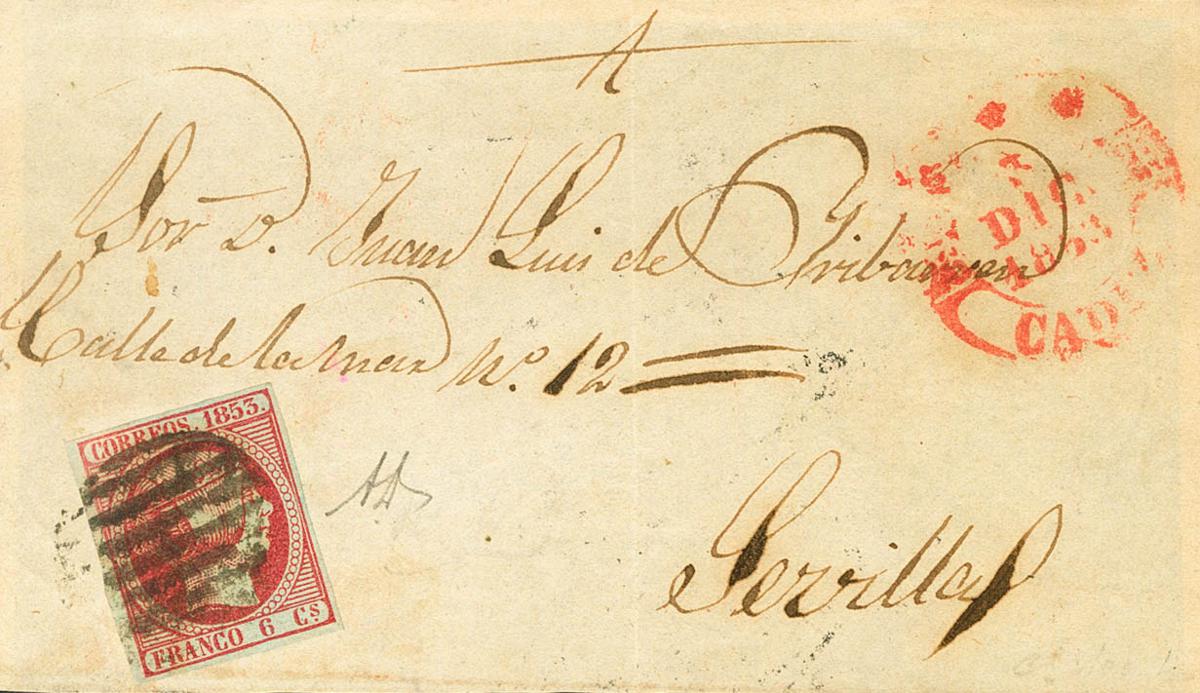 Sor D. Juan Luis de
Calle de la Mar N.º 12
Sevilla
DIC
1853
CAD
CORREOS. 1853.
FRANCO 6 Cs